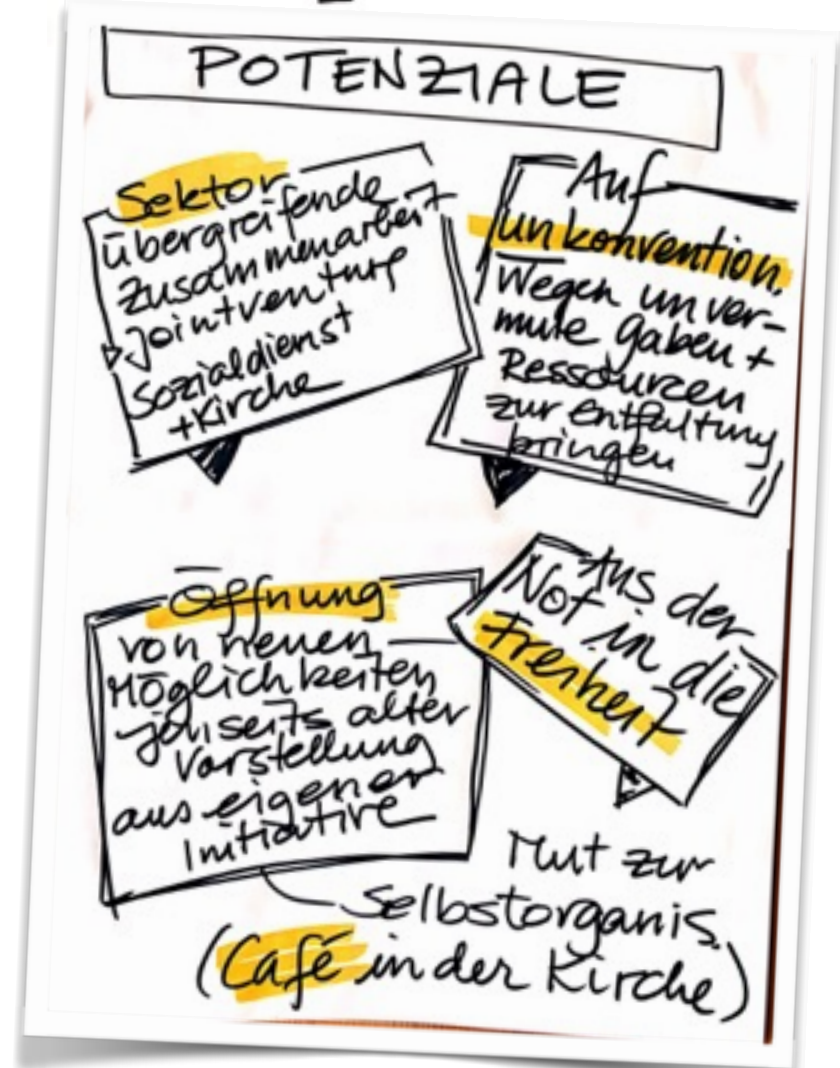 POTENZIALE
Sektor
übergreifende
Zusammenarbeit
Jointventure
Sozialdienst
+Kirche
Auf
unkonvention.
Wegen unver-
mute Gaben +
Ressourcen
zur Entfaltung
bringen
Öffnung
von neuen
Möglichkeiten
jenseits alter
Vorstellung
aus eigener
Initiative
Aus der
Not in die
Freiheit
Mut zur
Selbstorganis.
(Café in der Kirche)